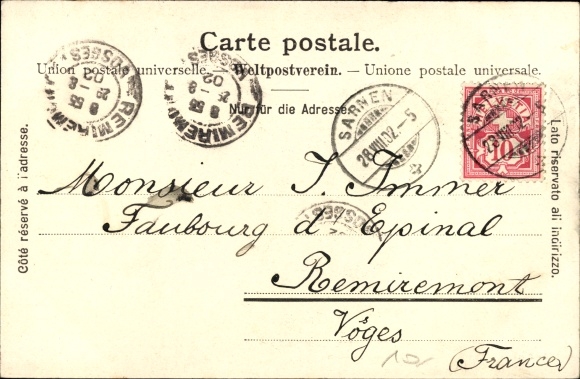 Carte postale.
Union postale universelle. — Weltpostverein. — Unione postale universale.
Nur für die Adresse.
REMIREMONT
VOSGES
REMIREMONT
VOSGES
SARNEN
28.VIII.02.-5
SARNEN
10
Côté réservé à l'adresse.
Lato riservato all indirizzo.
Monsieur J. Immer
Faubourg d'Epinal
Remiremont
Vôges
(France)